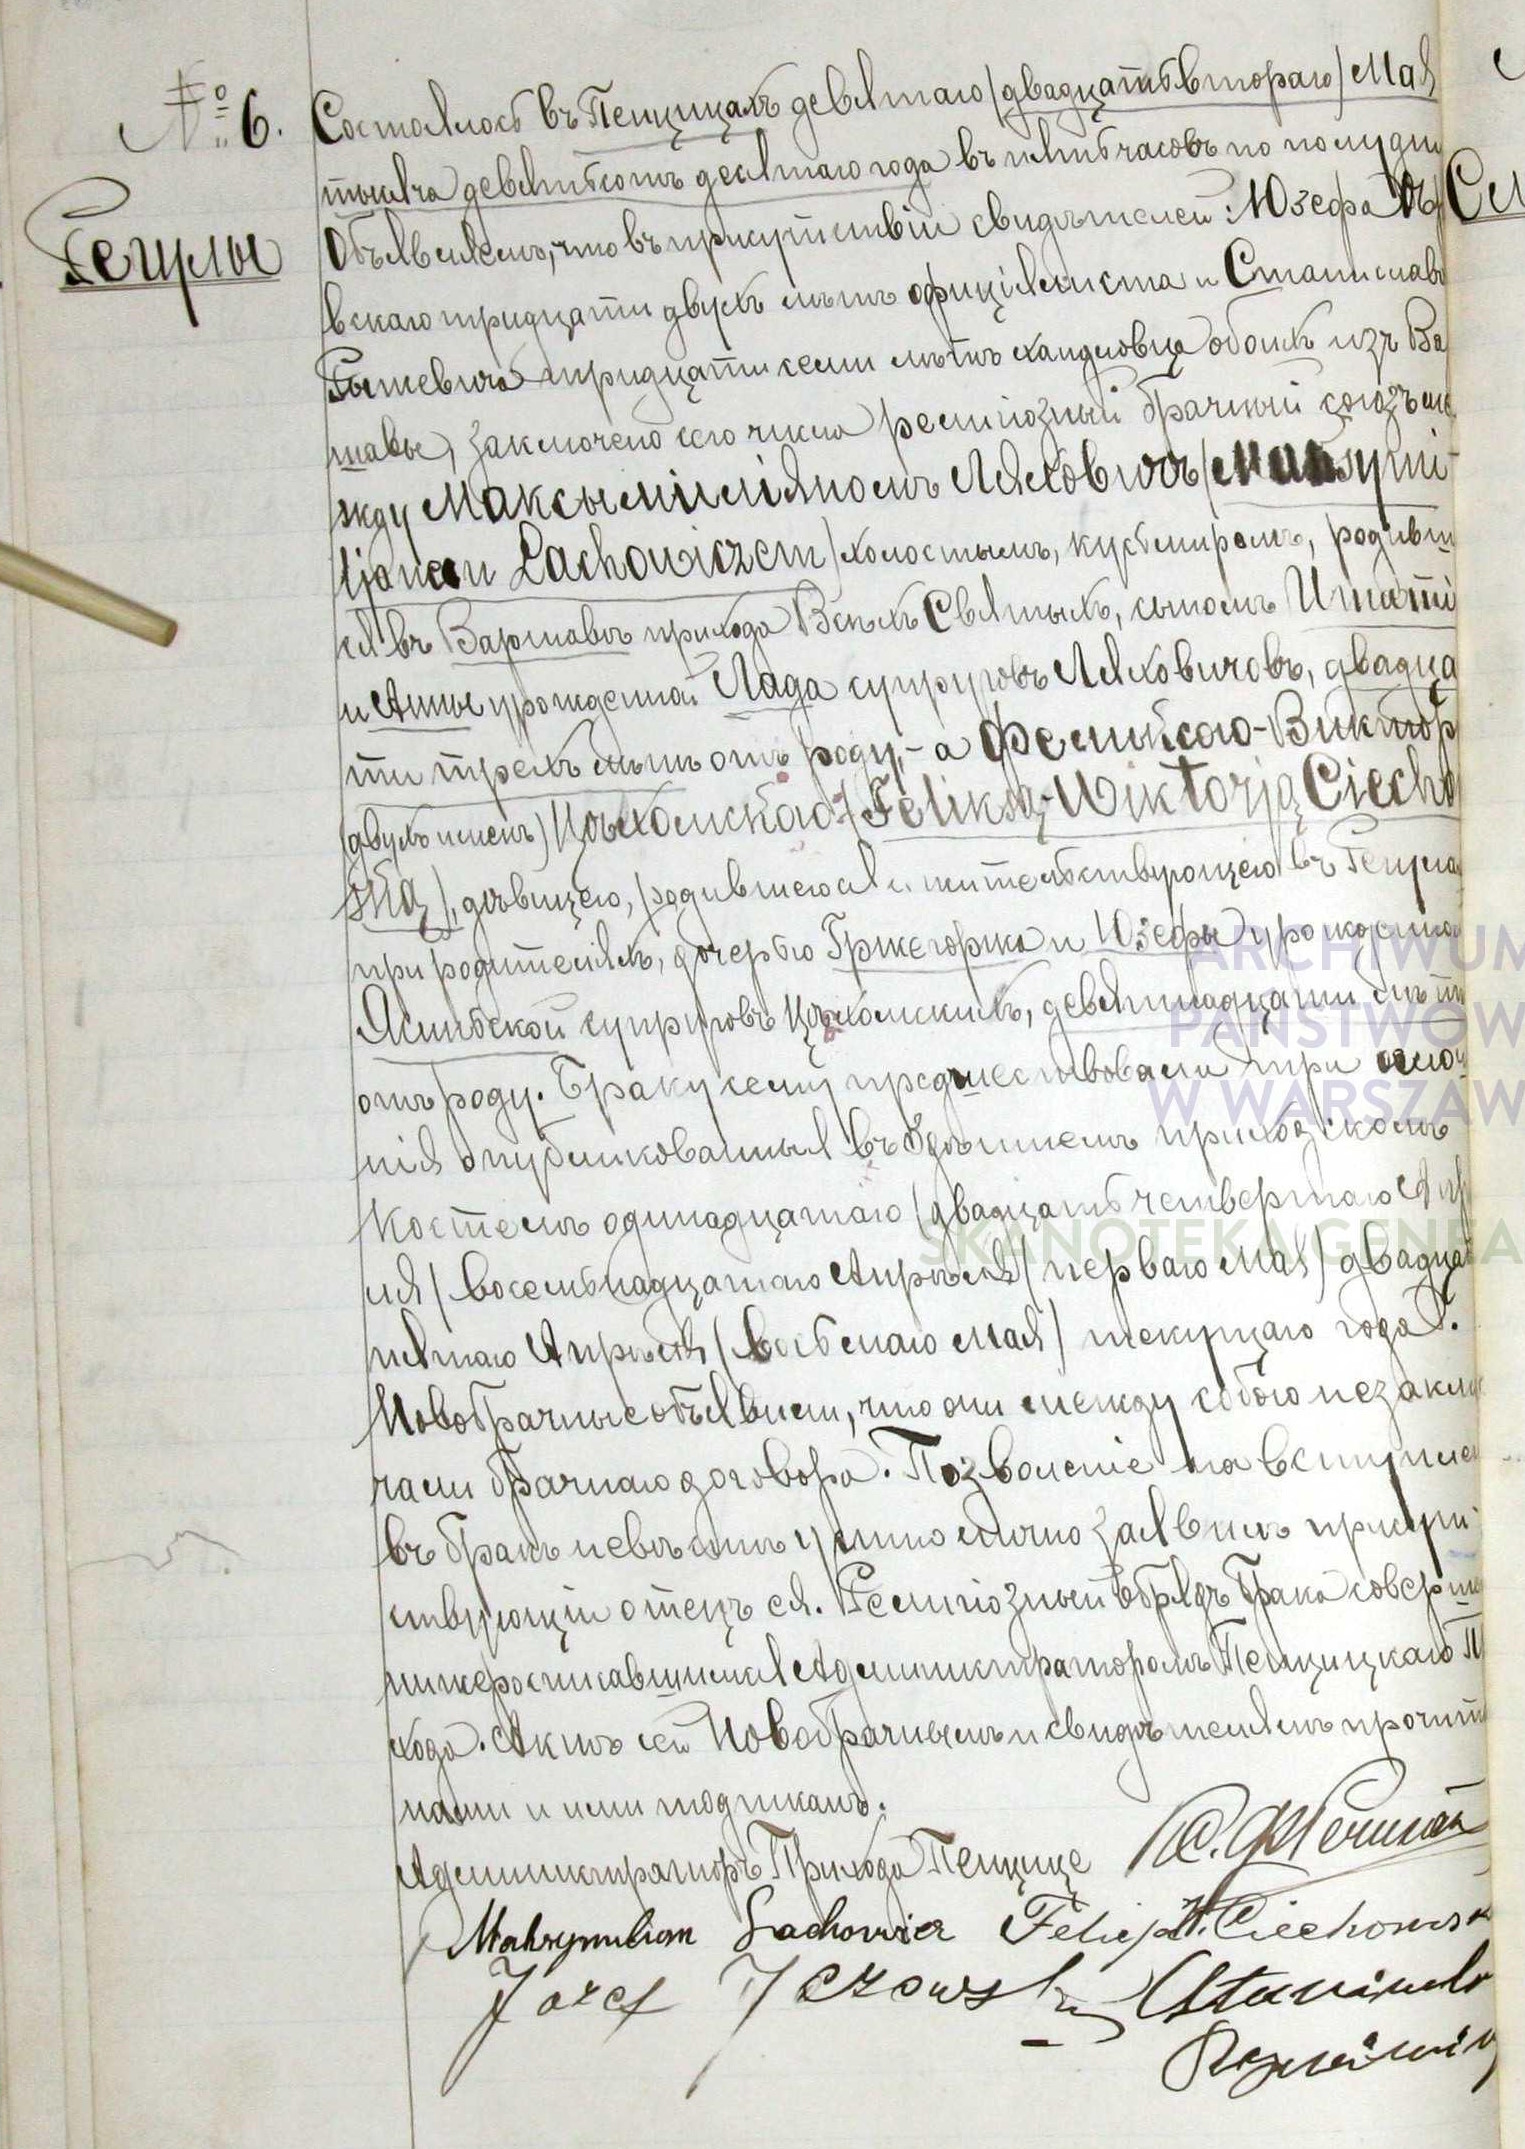 № 6.
Регулы
Состоялось въ Пенцицахъ девятаго /двадцать втораго/ Мая
тысяча девятьсотъ десятаго года въ пять часовъ по полудни
Объявляемъ, что въ присутствіи свидѣтелей: Юзефа
вскаго тридцати двухъ лѣтъ офиціялиста и Станислава
тридцати семи лѣтъ обоихъ изъ Ва
шавы, заключено сего числа религіозный брачный союзъ ме
жду Максымиліяномъ Ляховичъ /Maksymi-
ljanem Lachowiczem/ холостымъ, родивш
ся въ Варшавѣ прихода Всѣхъ Святыхъ, сыномъ Игнаты
и Анны урожденной Лада супруговъ Ляховичовъ, двадца
ти трехъ лѣтъ отъ роду, - а Феликсою-Виктор
(двухъ именъ) Цѣхомскою /Feliksą-Wiktorją Ciecho
ską/, дѣвицею, родившеюся и жительствующею въ Регула
при родителяхъ, дочерью Гржегоржа и Юзефы урожденной
супруговъ Цѣхомскихъ, девятнадцати лѣтъ
отъ роду. Браку сему предшествовали три оглаш
нія опубликованныя въ здѣшнемъ приходскомъ
Костелѣ одинадцатаго /двадцать четвертаго Апр
ля/ восемьнадцатаго Апрѣля /перваго Мая/ двадцать
пятаго Апрѣля /восьмаго Мая/ текущаго года.
Новобрачные объявили, что они между собою не заклю
чали брачнаго договора. Позволеніе на вступлен
въ бракъ невѣстѣ устно лично заявилъ присут
ствующій отецъ ея. Религіозный обрядъ брака соверш
нижеросписавшимся Администраторомъ Пенцицкаго П
хода. Актъ сей Новобрачнымъ и свидѣтелямъ прочит
нами и ими подписанъ.
Администраторъ Прихода Пенцице
Maksymilian Lachowicz Felicja W. Ciechomsk
Józef Stanisła
ARCHIWUM
PAŃSTWOW
W WARSZAW
SKANOTEKA.GENEA